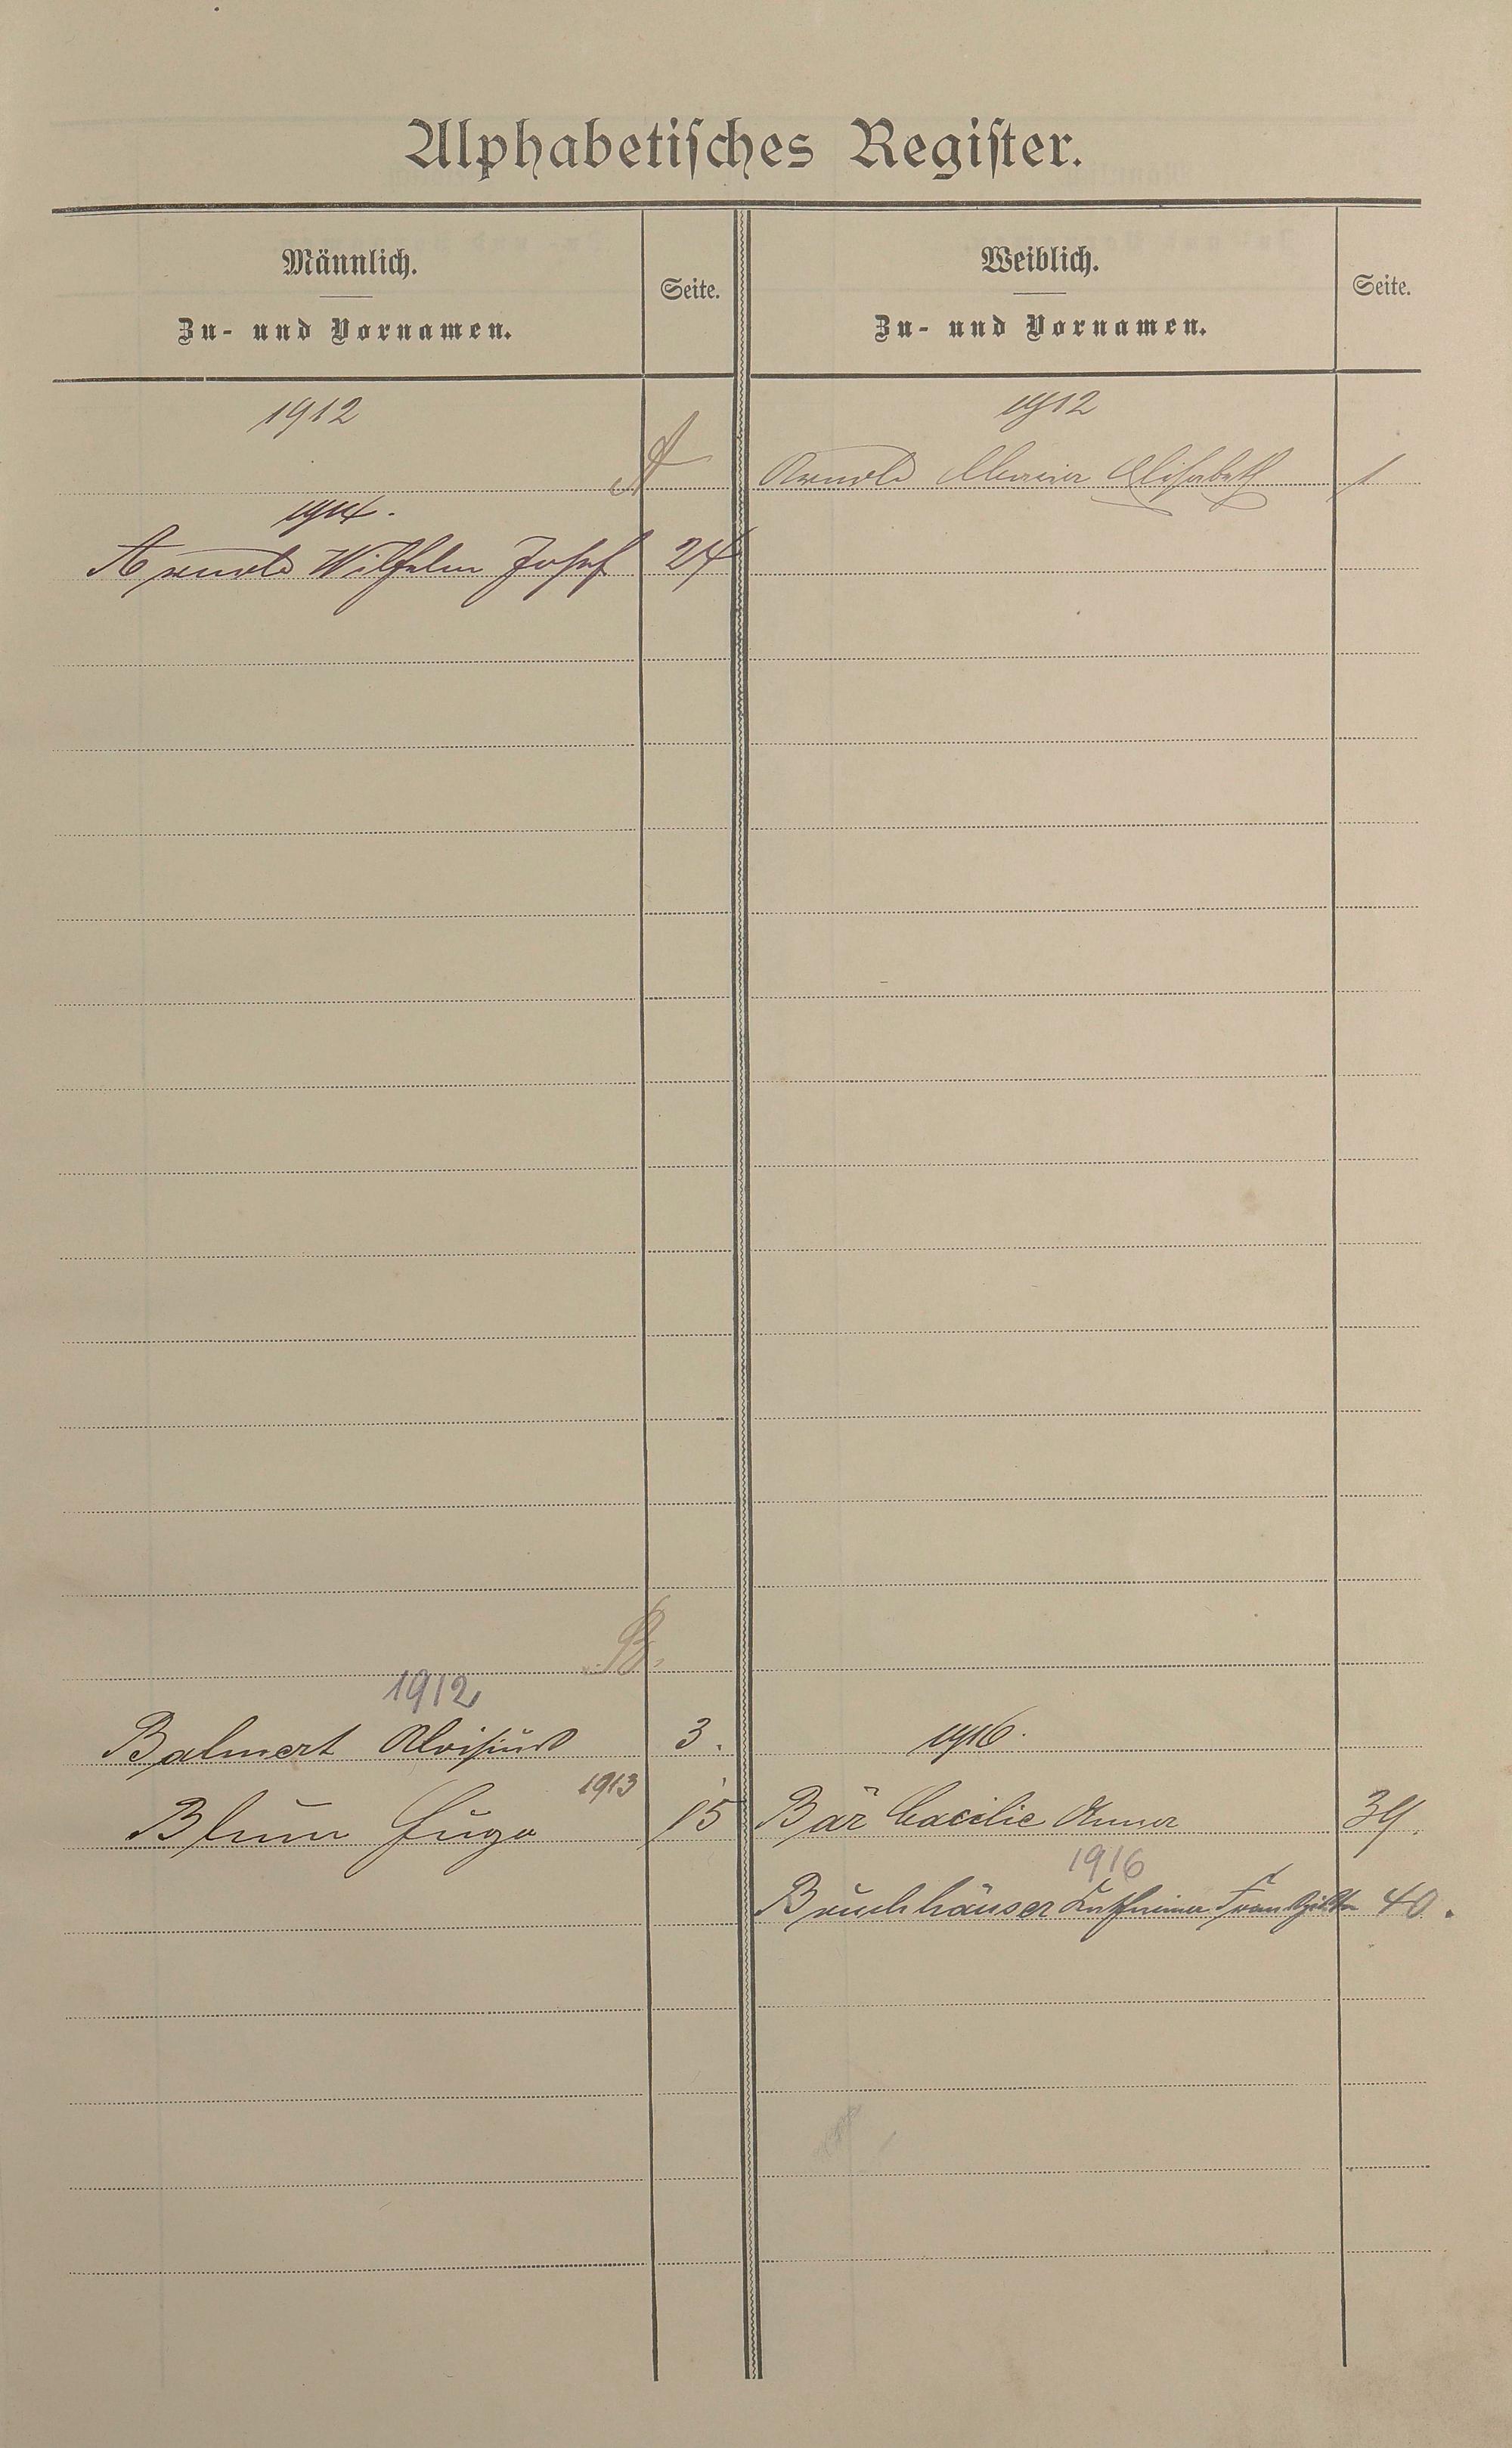 Alphabetisches Register.
Männlich.
Zu- und Vornamen.
Seite.
Weiblich.
Zu- und Vornamen.
Seite.
1912
1912
A
Arnold Maria Elisabeth
1
1914.
Arnold Wilhelm Josef
24
B.
1912
Balmert Aloisius
3.
1916.
1913
Blum Hugo
15
Bär Cacilie Anna
39.
1916
Bruchhäuser Katharina
40.